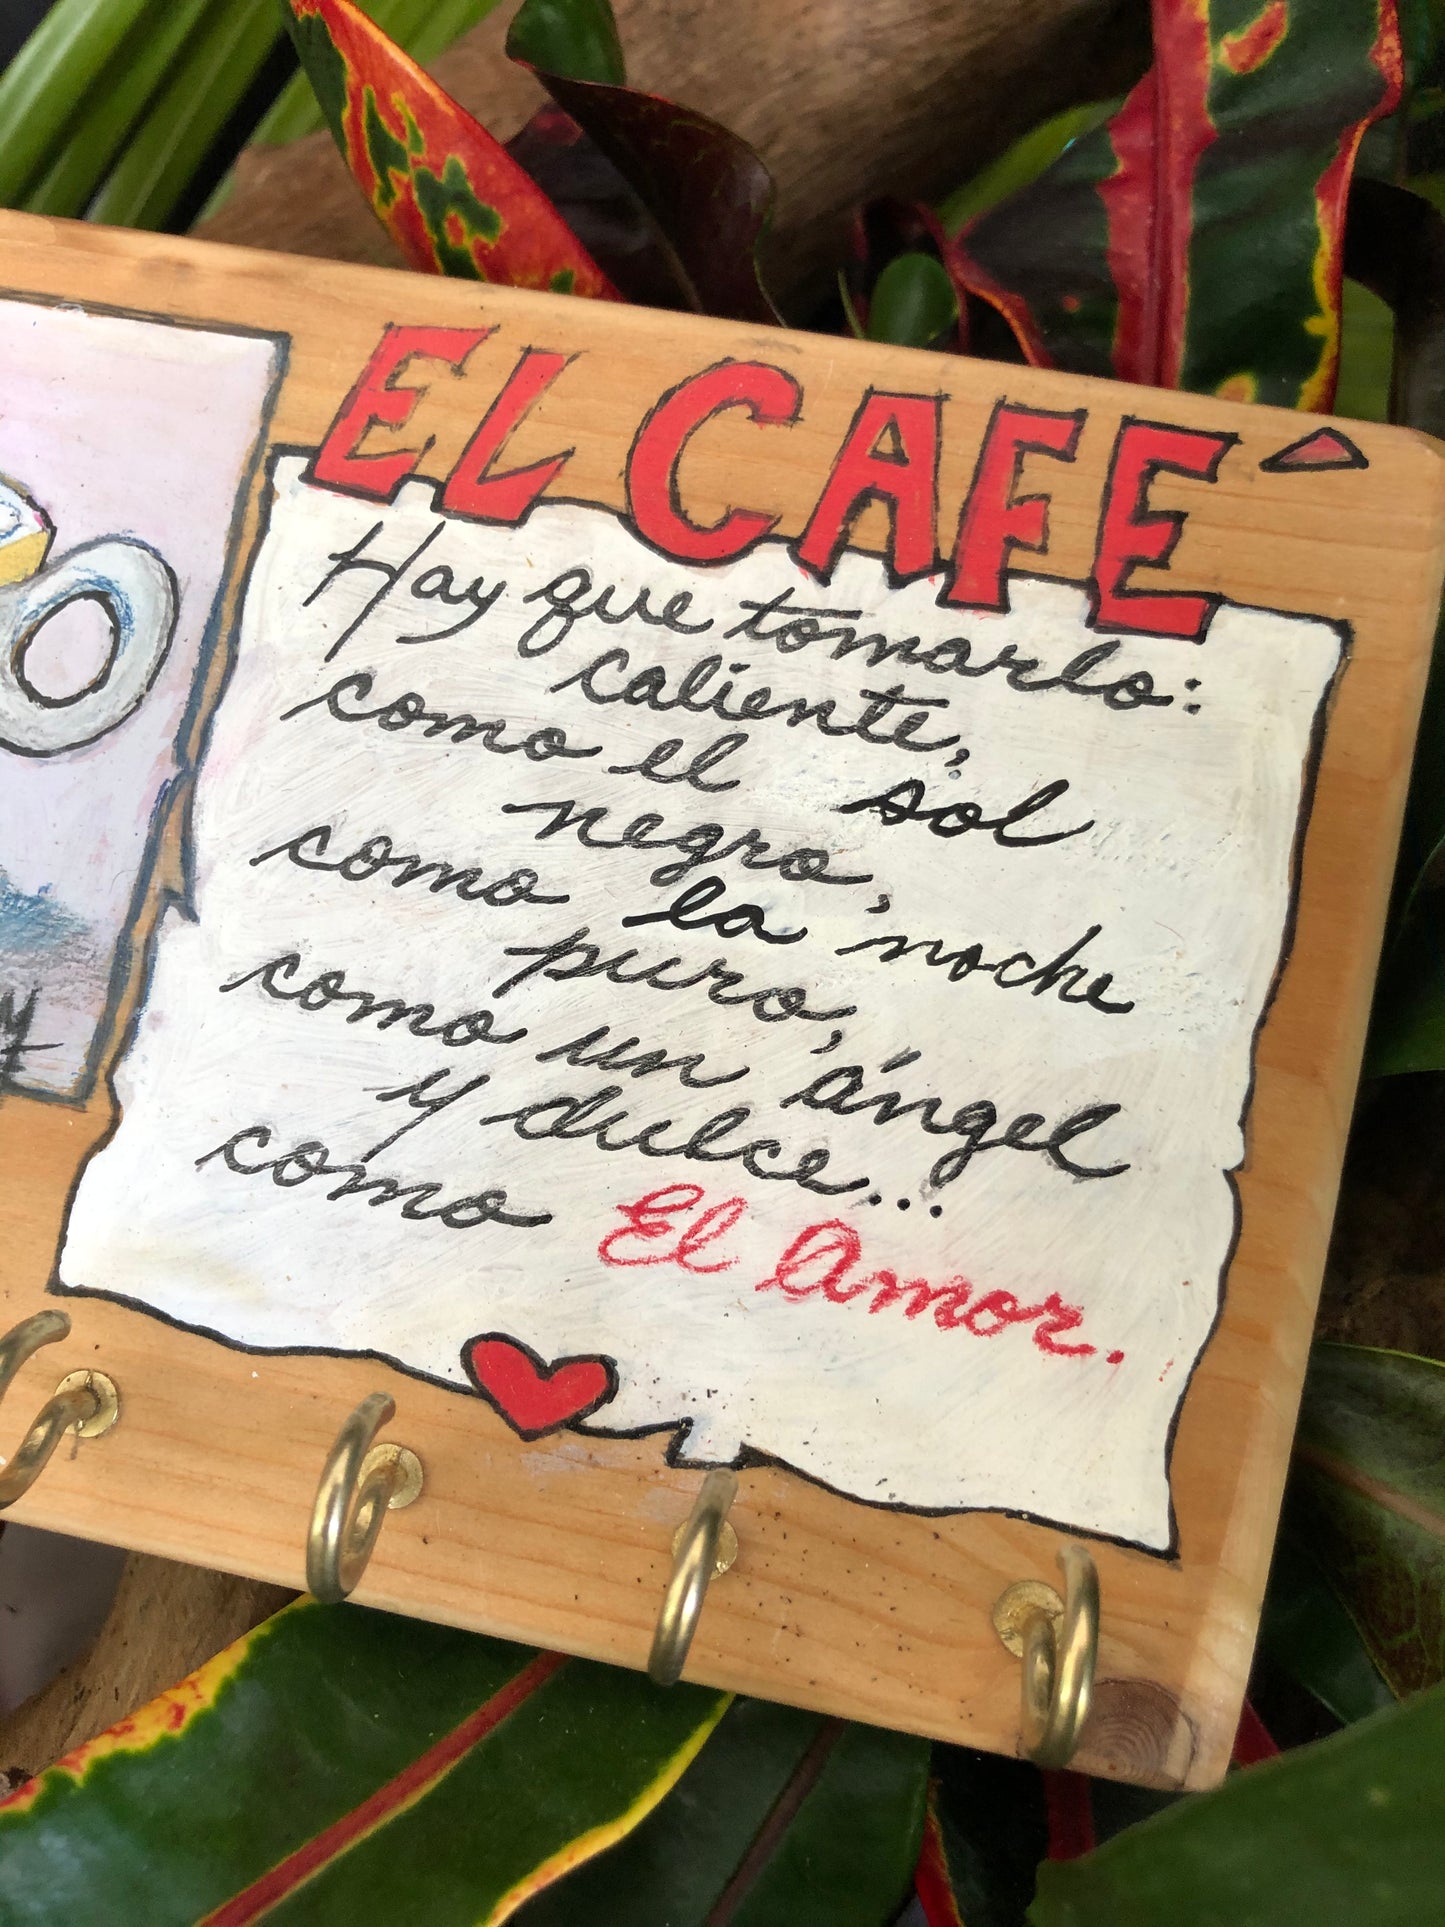 EL CAFE´
Hay que tomarlo:
caliente,
como el sol
negro,
como la noche
puro,
como un ángel
y dulce...
como El Amor.